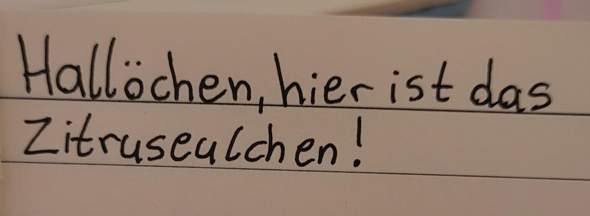 Hallöchen, hier ist das
Zitruseulchen!